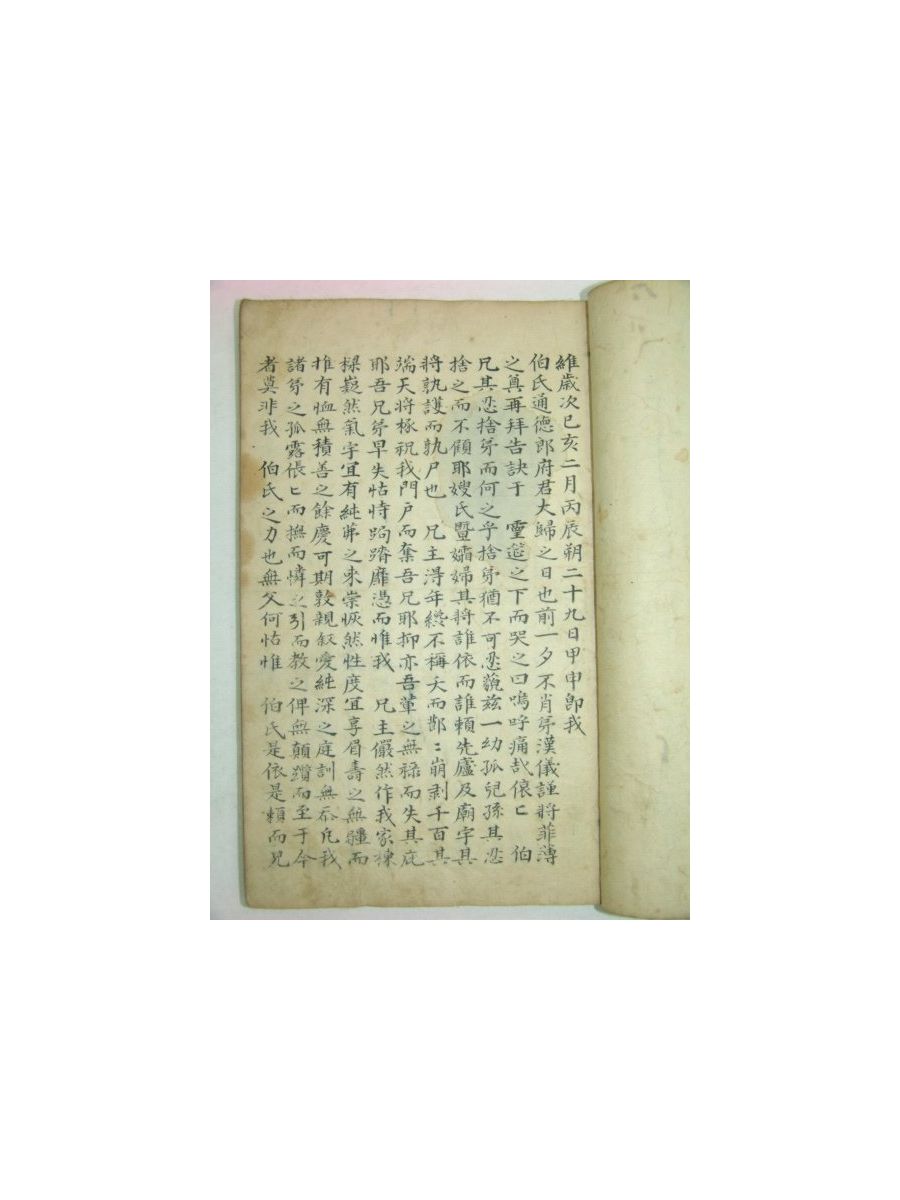 維歲次己亥二月丙辰朔二十九日甲申卽我
伯氏通德郎府君大歸之日也前一夕不肖弟漢儀謹將菲薄
之奠再拜告訣于 靈筵之下而哭之曰嗚呼痛哉 伯
兄其忍捨弟而何之乎捨弟猶不可忍藐玆一幼孤兒孫其忍
捨之而不顧耶嫂氏曁孀婦其將誰依而誰賴先廬及廟宇其
將孰護而孰尸也 兄主得年纔不稱夭而鄙〻崩剥千百其
端天將椓祝我門戶而奪吾兄耶抑亦吾輩之無祿而失其庇
耶吾兄弟早失怙恃跼蹐靡憑而惟我 兄主儼然作我家棟
樑嶷然氣宇宜有純茀之來崇恢然性度宜享眉壽之無疆而
惟有恤無積善之餘慶可期敦親敍愛純深之庭訓無忝凡我
諸弟之孤露倀〻而撫而憐之引而教之俾無顛躓而至于今
者莫非我 伯氏之力也無父何怙惟 伯氏是依是賴而兄